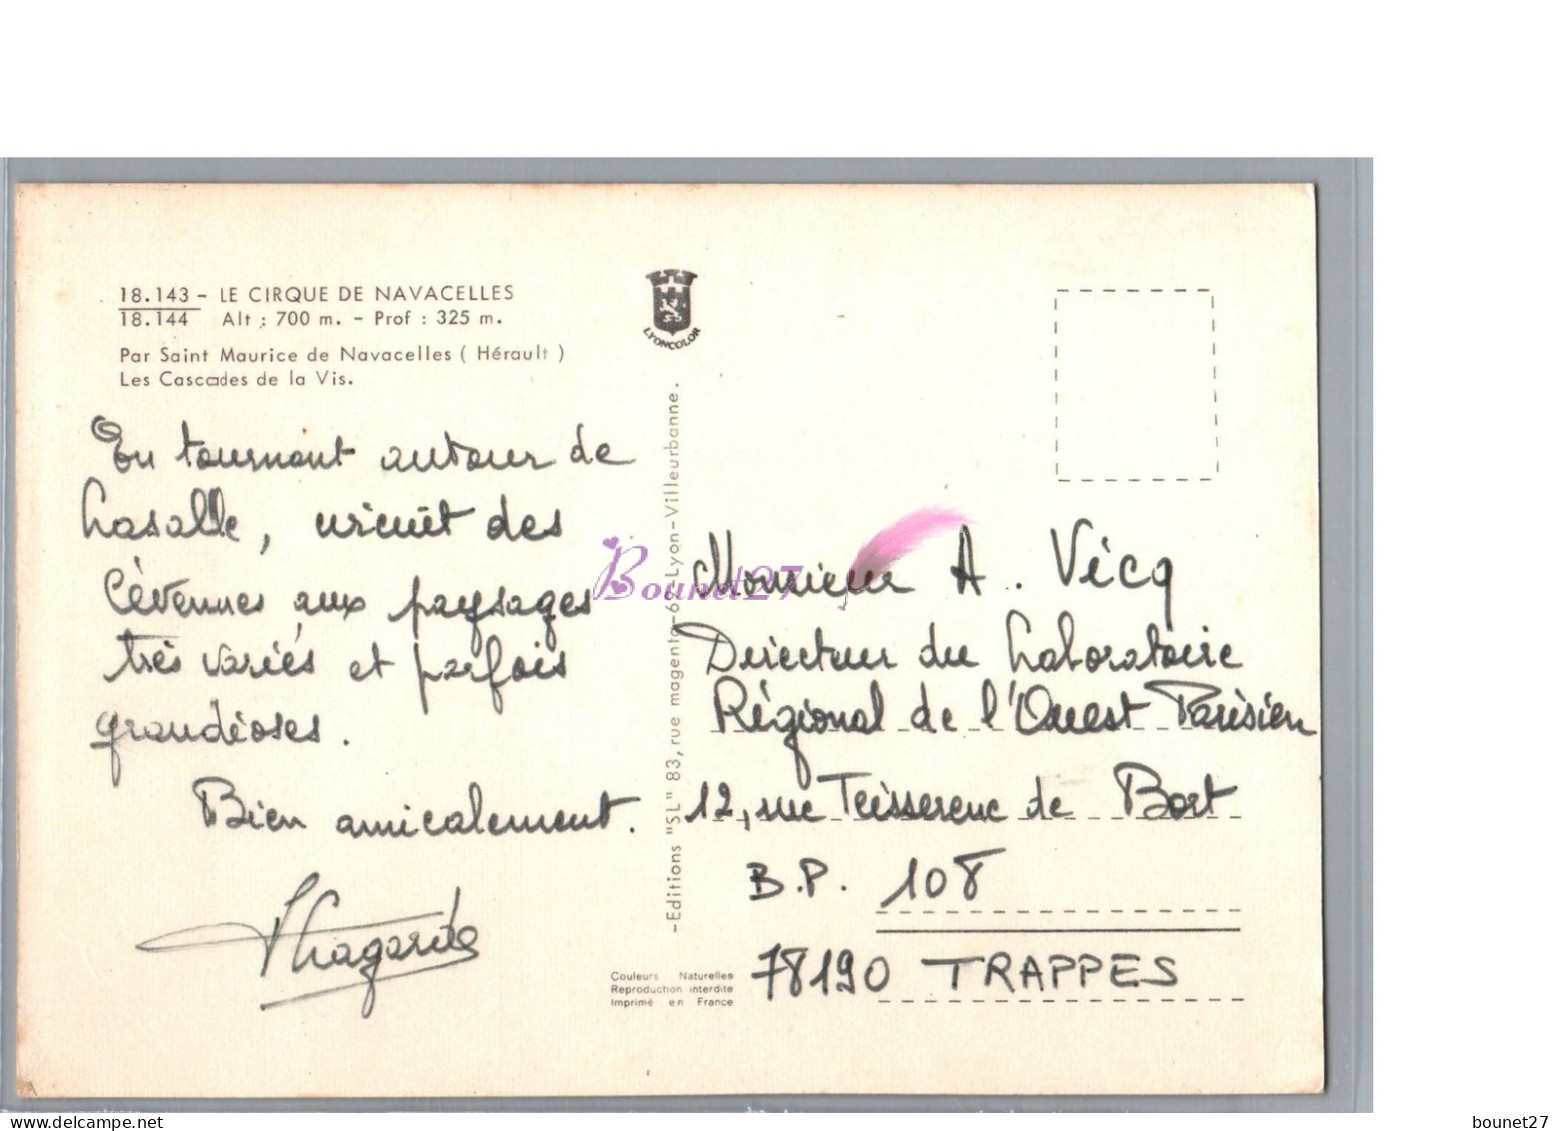 18.143 - LE CIRQUE DE NAVACELLES
18.144 Alt : 700 m. - Prof : 325 m.
Par Saint Maurice de Navacelles ( Hérault )
Les Cascades de la Vis.
En tournant autour de
Lasalle, circuit des
Cévennes aux paysages
très variés et parfois
grandioses.
Bien amicalement.
LYONCOLOR
-Editions "SL" 83, rue magenta-6-Lyon-Villeurbanne.
Couleurs Naturelles
Reproduction interdite
Imprimé en France
Bounet27
Monsieur A. Vécq
Directeur du Laboratoire
Régional de l'Ouest Parisien
12, rue Teisserenc de Bort
B.P. 108
78190 TRAPPES
delcampe.net
bounet27